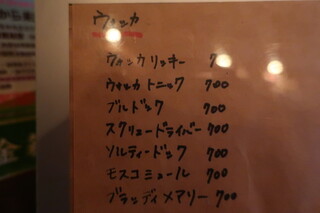 ウォッカ
ウォッカリッキー 7
ウォッカトニック 700
ブルドック 700
スクリュードライバー 700
ソルティードック 700
モスコミュール 700
ブラッディメアリー 700